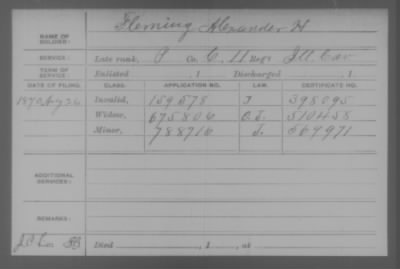 NAME OF SOLDIER: Fleming Alexander H
SERVICE: Late rank, P Co. C, 11 Reg't Ill Cav
TERM OF SERVICE: Enlisted , 1 Discharged , 1
DATE OF FILING. CLASS. APPLICATION NO. LAW. CERTIFICATE NO.
Invalid, 159,578 398095
Widow, 675806 510458
Minor, 788716 569971
ADDITIONAL SERVICES:
REMARKS:
Died , 1 , at